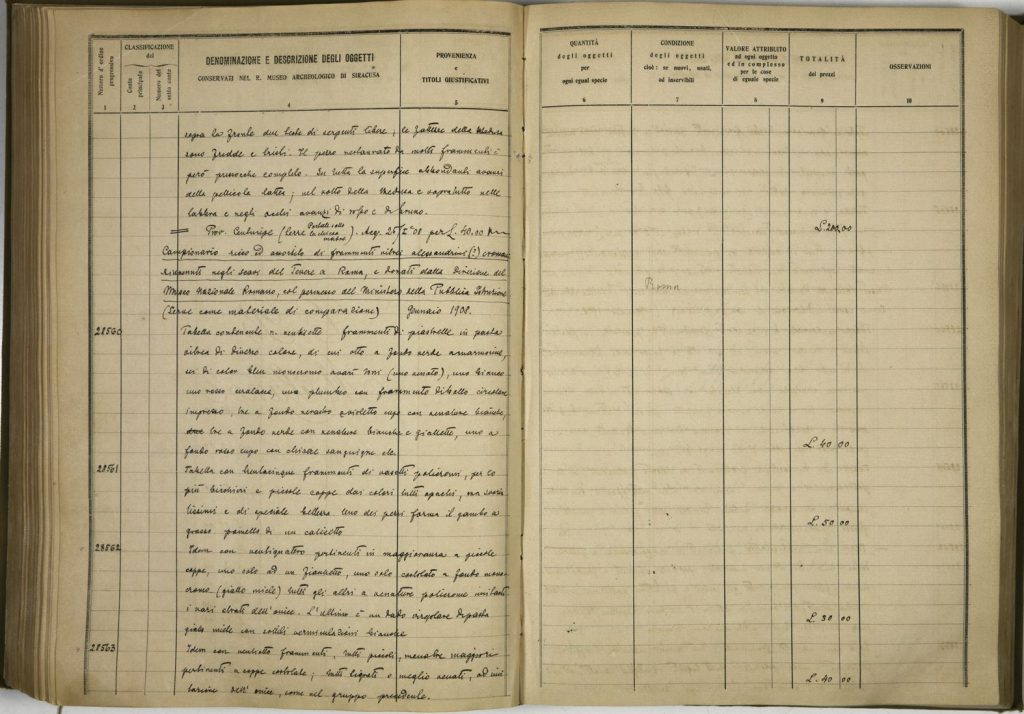 Numero d'ordine progressivo
CLASSIFICAZIONE
del
Conto principale
Numero del sotto conto
DENOMINAZIONE E DESCRIZIONE DEGLI OGGETTI
CONSERVATI NEL R. MUSEO ARCHEOLOGICO DI SIRACUSA
PROVENIENZA
e
TITOLI GIUSTIFICATIVI
1 2 3 4 5
QUANTITÀ
degli oggetti
per
ogni egual specie
CONDIZIONE
degli oggetti
cioè: se nuovi, usati,
od inservibili
VALORE ATTRIBUITO
ad ogni oggetto
ed in complesso
per le cose
di eguale specie
TOTALITÀ
dei prezzi
OSSERVAZIONI
6 7 8 9 10
sopra la fronte due teste di serpenti libere; le fattezze della Medusa
sono fredde e tristi. Il pezzo restaurato da molti frammenti è
però pressochè completo. In tutta la superfice abbondanti avanzi
della pellicola lattea; nel volto della Medusa e sopratutto nelle
labbra e negli occhi avanzi di roseo e di bruno.
Prov. Centuripe (terre
). Acq. 25 08 per L. 40.00
L. 200,00
Campionario ricco ed assortito di frammenti vitrei alessandrini (?) e romani
rinvenuti negli scavi del Tevere a Roma, e donati dalla Direzione del
Museo Nazionale Romano, col permesso del Ministero della Pubblica Istruzione
Roma
(Serve come materiale di comparazione) Gennaio 1908.
28560
Tabella contenente n. ventisette frammenti di piastrelle in pasta
vitrea di diverso colore, di cui otto a fondo verde marmorino,
sei di color bleu monocromo (uno venato), uno bianco
uno rosso ceralacca, uno plumbeo con frammento di bollo circolare
impresso, tre a fondo nerastro violetto cupo con venature bianche,
tre a fondo verde con venature bianche e giallette, uno a
fondo rosso cupo con chiazze sanguigne etc.
L. 40 00
28561
Tabella con trentacinque frammenti di vasetti policromi, per lo
più bicchieri e piccole coppe dai colori tutti opachi, ma svaria
tissimi e di speciale bellezza. Uno dei pezzi forma il gambo a
grosso pomello di un calicetto
L. 50 00
28562
Idem con ventiquattro pertinenti in maggioranza a piccole
coppe, uno solo ad un fianchetto, uno solo costolato a fondo mono-
cromo (giallo miele) tutti gli altri a venature policrome imitanti
i vari strati dell'onice. L'ultimo è un dado circolare di pasta
giallo miele con sottili vermiculazioni bianche
L. 30 00
28563
Idem con ventotto frammenti, tutti piccoli, meno tre maggiori
pertinenti a coppe costolate; tutti tigrati o meglio venati, ad imi
tazione dell'onice, come nel gruppo precedente.
L. 40 00